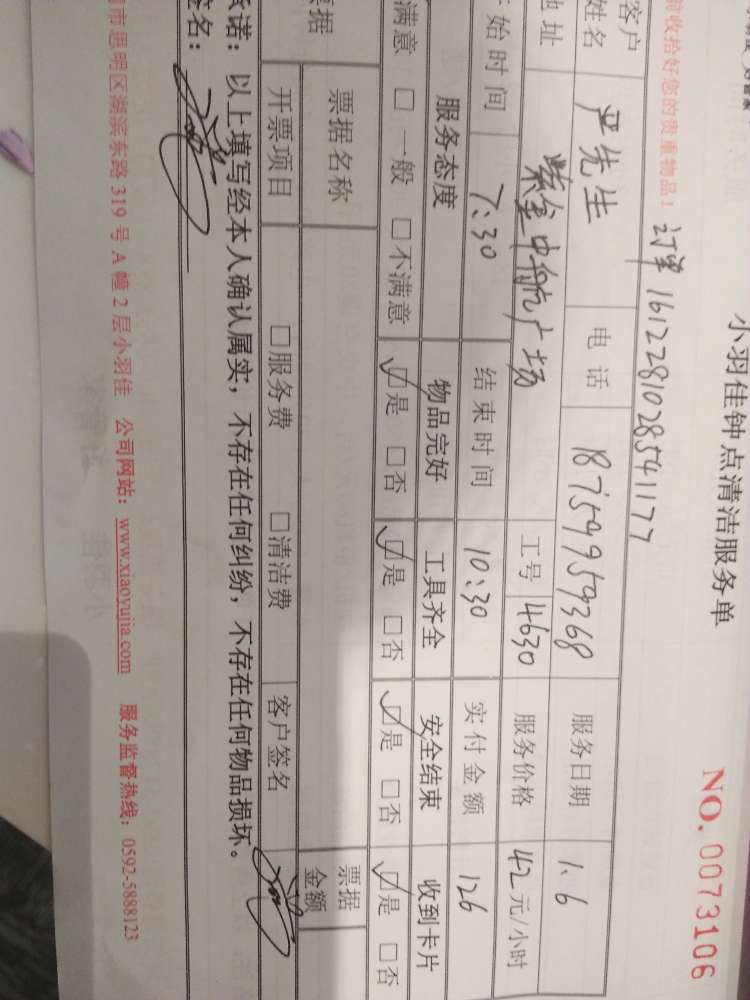 小羽佳钟点清洁服务单
NO. 0073106
前收拾好您的贵重物品! 订单 1612281028541177
客户姓名 严先生 电话 18759959368 服务日期 1.6
地址 紫金中航广场 工号 4630 服务价格 42元/小时
始时间 7:30 结束时间 10:30 实付金额 126
服务态度 物品完好 工具齐全 安全结束 收到卡片
满意 □一般 □不满意 ☑是 □否 ☑是 □否 ☑是 □否 ☑是 □否
票据 票据名称 票据金额
开票项目 □服务费 □清洁费 客户签名
诺：以上填写经本人确认属实，不存在任何纠纷，不存在任何物品损坏。
签名：
市思明区湖滨东路319号A幢2层小羽佳 公司网站：www.xiaoyujia.com 服务监督热线：0592-5888123